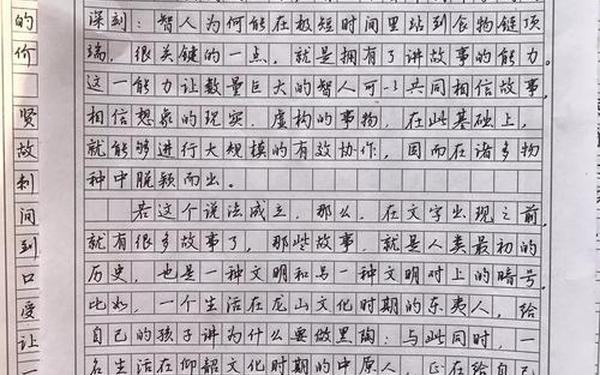 深刻：智人为何能在极短时间里站到食物链顶
端，很关键的一点，就是拥有了讲故事的能力。
这一能力让数量巨大的智人可以共同相信故事，
相信想象的现实、虚构的事物，在此基础上，
就能够进行大规模的有效协作，因而在诸多物
种中脱颖而出。
若这个说法成立，那么，在文字出现之前，
就有很多故事了，那些故事，就是人类最初的
历史，也是一种文明和另一种文明对上的暗号。
比如，一个生活在龙山文化时期的东夷人，给
自己的孩子讲为什么要做黑陶；与此同时，一
名生活在仰韶文化时期的中原人，正在给自己
的
价
贤
故
刺
间
到
口
受
让
一